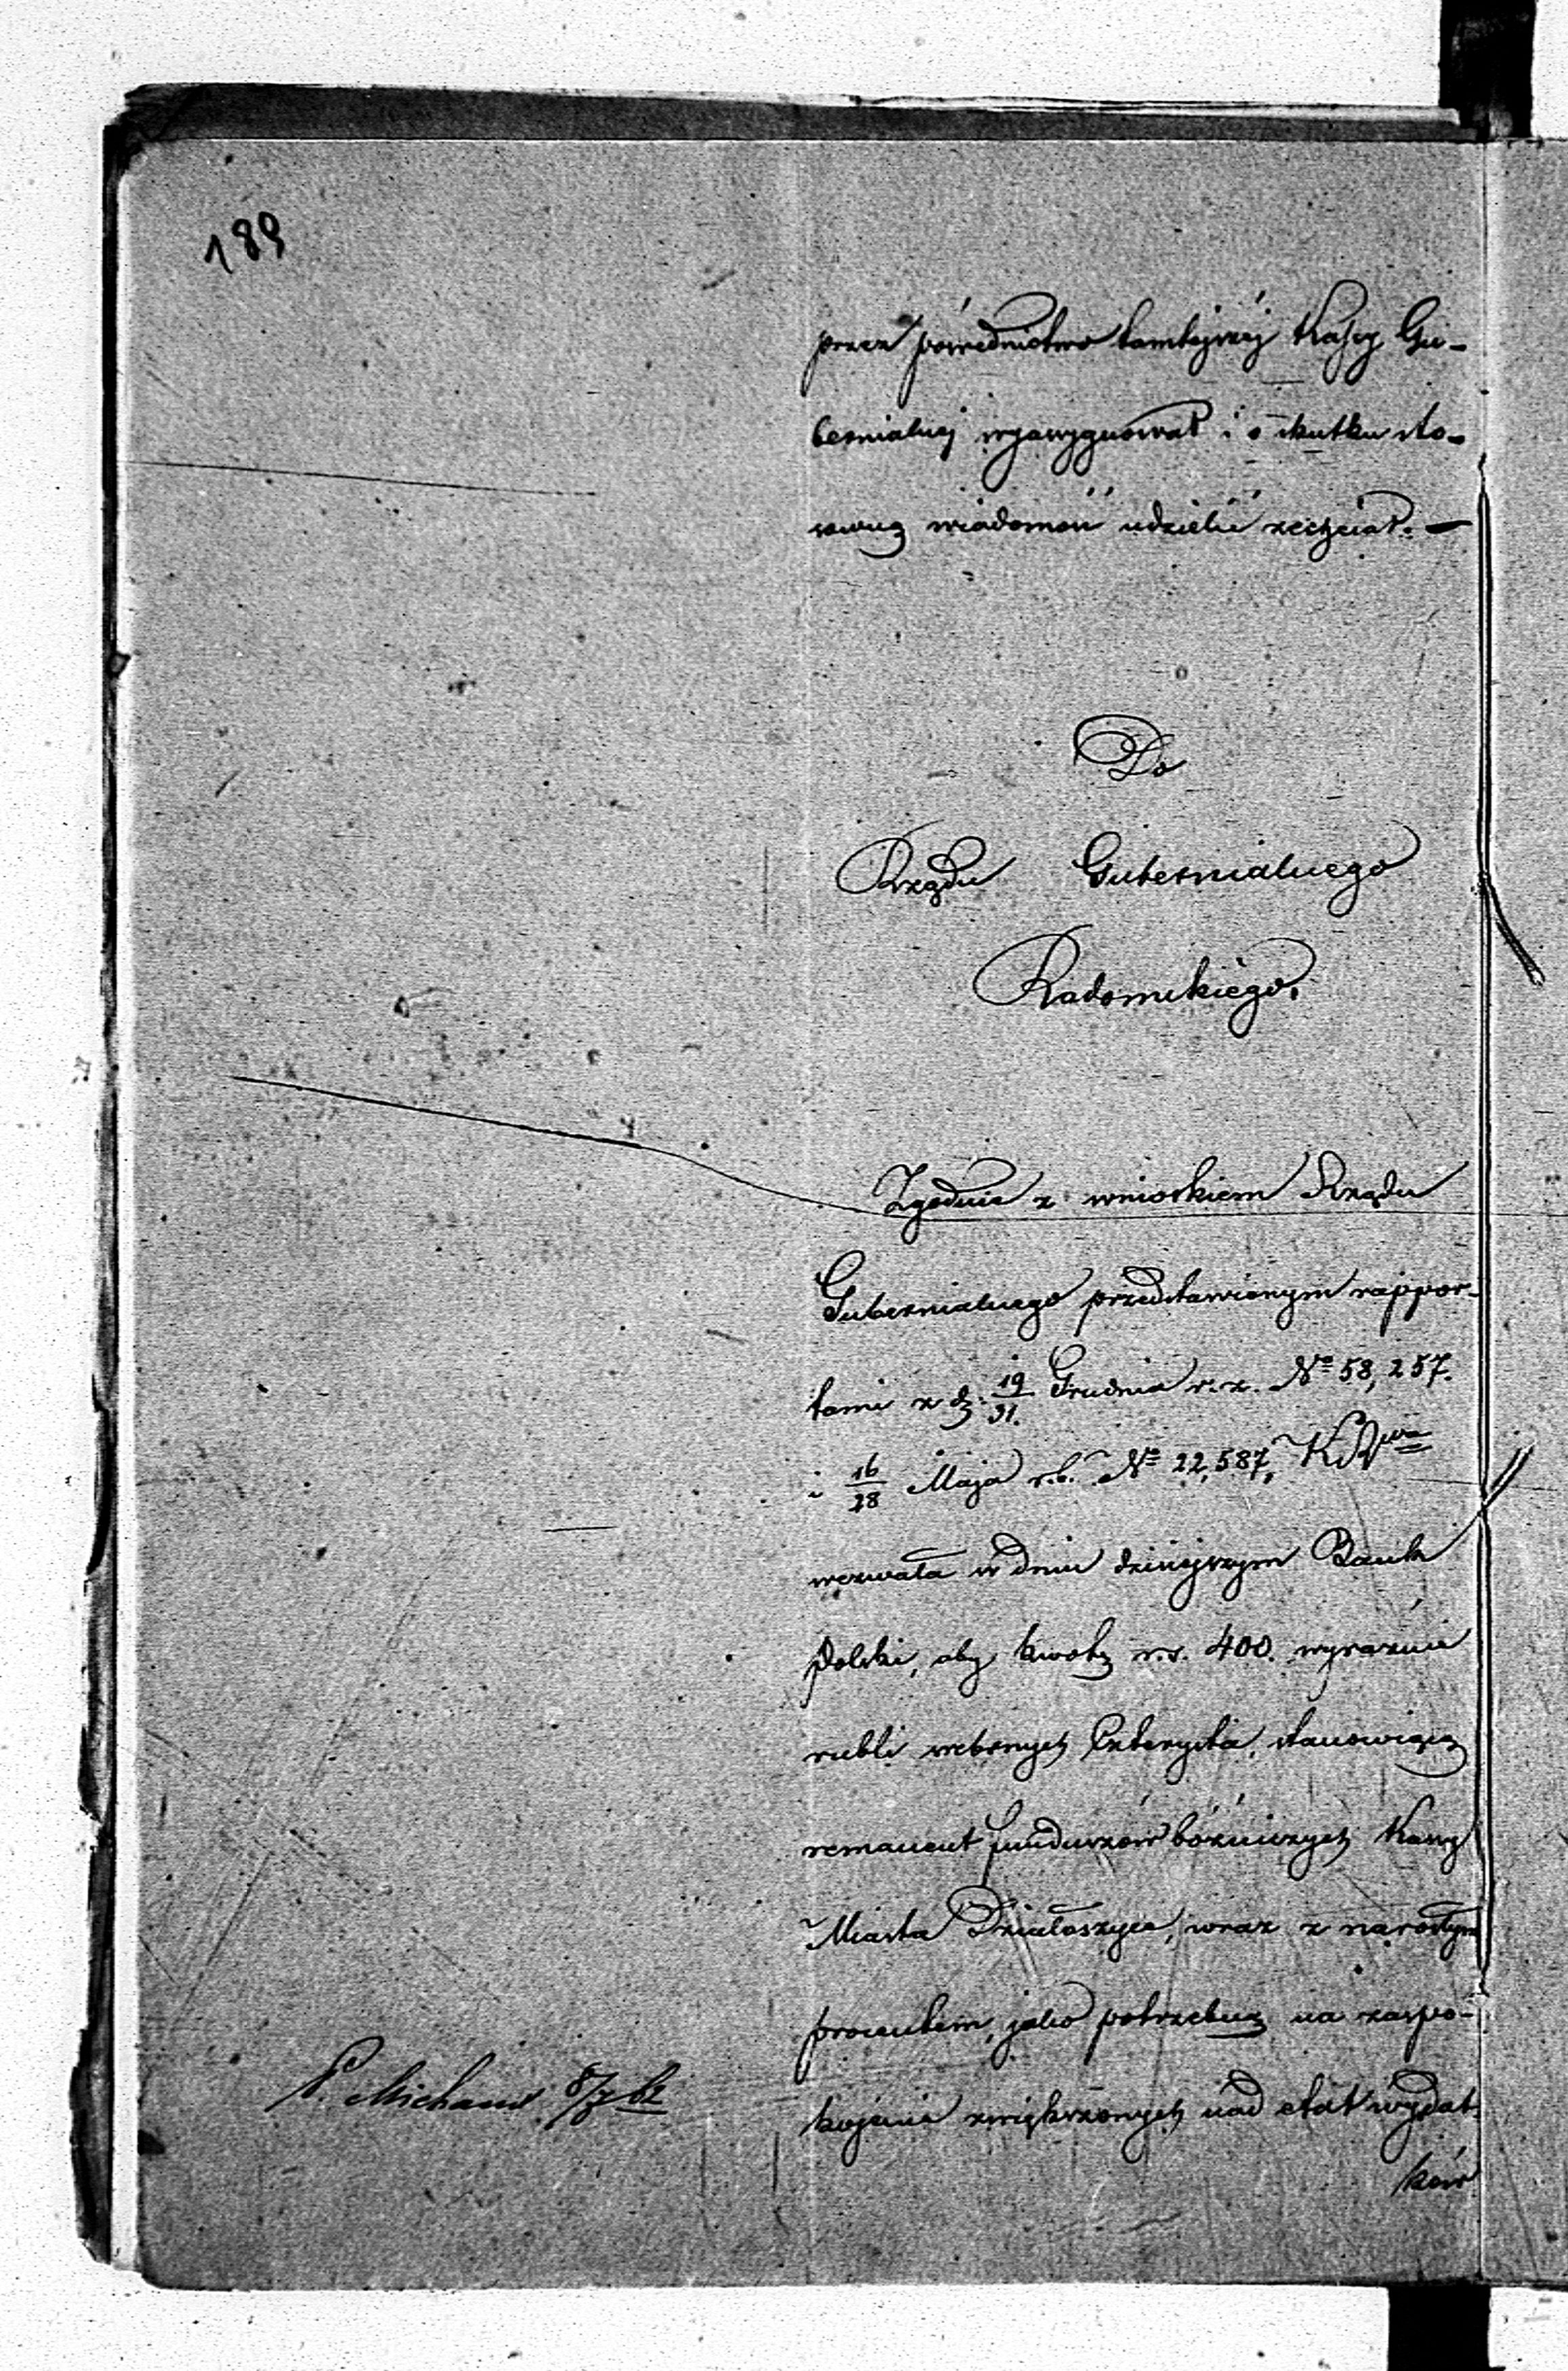 189
przez pośrednictwo tamtejszéj Kassy Gu-
bernialnej wyasygnował i o skutku sto-
sowną wiadomość udzielić zechciał. —
Do
Rządu Gubernialnego
Radomskiego.
Zgodnie z wnioskiem Rządu
Gubernialnego przedstawionym rappor-
tami z d. 19/31. Grudnia r. z. No 58,257.
i 16/28 Maja r.b. No 22,587,
wezwała w dniu dzisiejszym Bank
Polski, aby kwotę r.s. 400. wyraźnie
rubli srebrnych Czterysta, stanowiącą
remanent funduszów bóźniczych Kassy
Miasta Działoszyce, wraz z narosłym
procentem, jako potrzebną na zaspo-
kojenie zwiększonych nad etat wydat-
ków
8/7 62